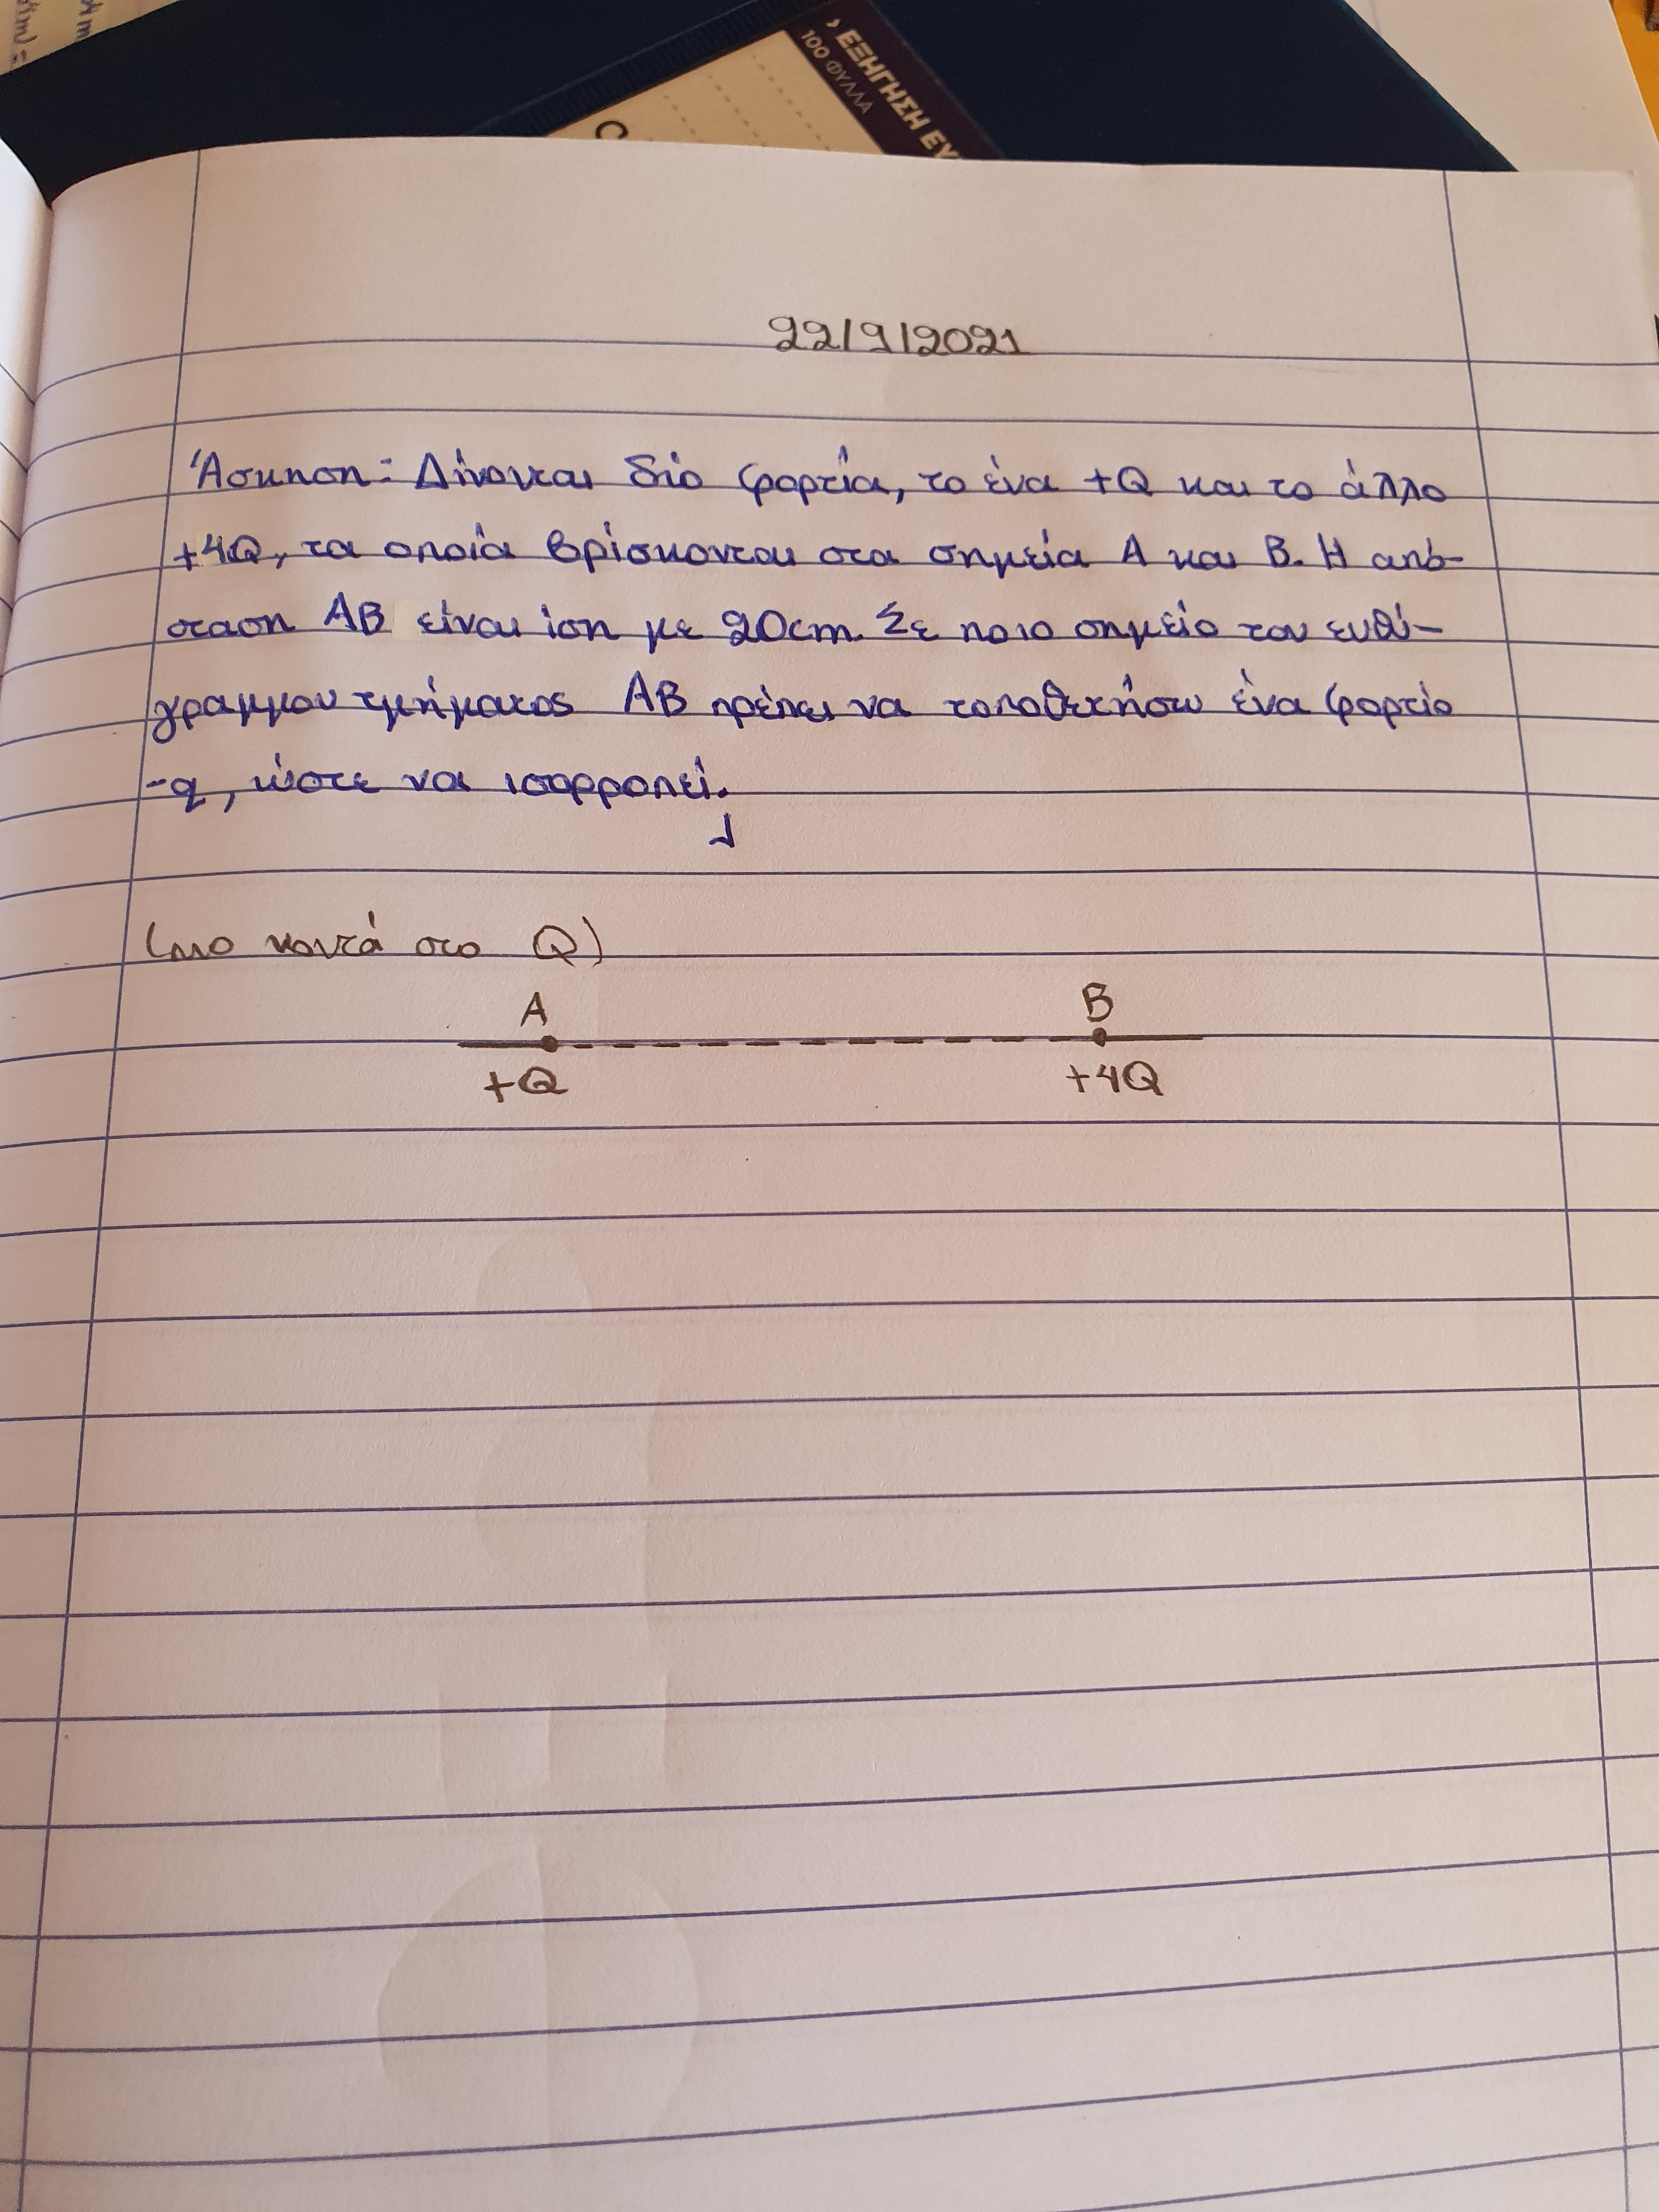 › ΕΞΗΓΗΣΗ ΕΥ
100 ΦΥΛΛΑ
22/9/2021
Άσκηση: Δίνονται δύο φορτία, το ένα +Q και το άλλο
+4Q, τα οποία βρίσκονται στα σημεία Α και Β. Η από-
σταση ΑΒ είναι ίση με 20cm. Σε ποιο σημείο του ευθύ-
γραμμου τμήματος ΑΒ πρέπει να τοποθετήσω ένα φορτίο
-q, ώστε να ισορροπεί.
(πιο κοντά στο Q)
Α Β
+Q +4Q